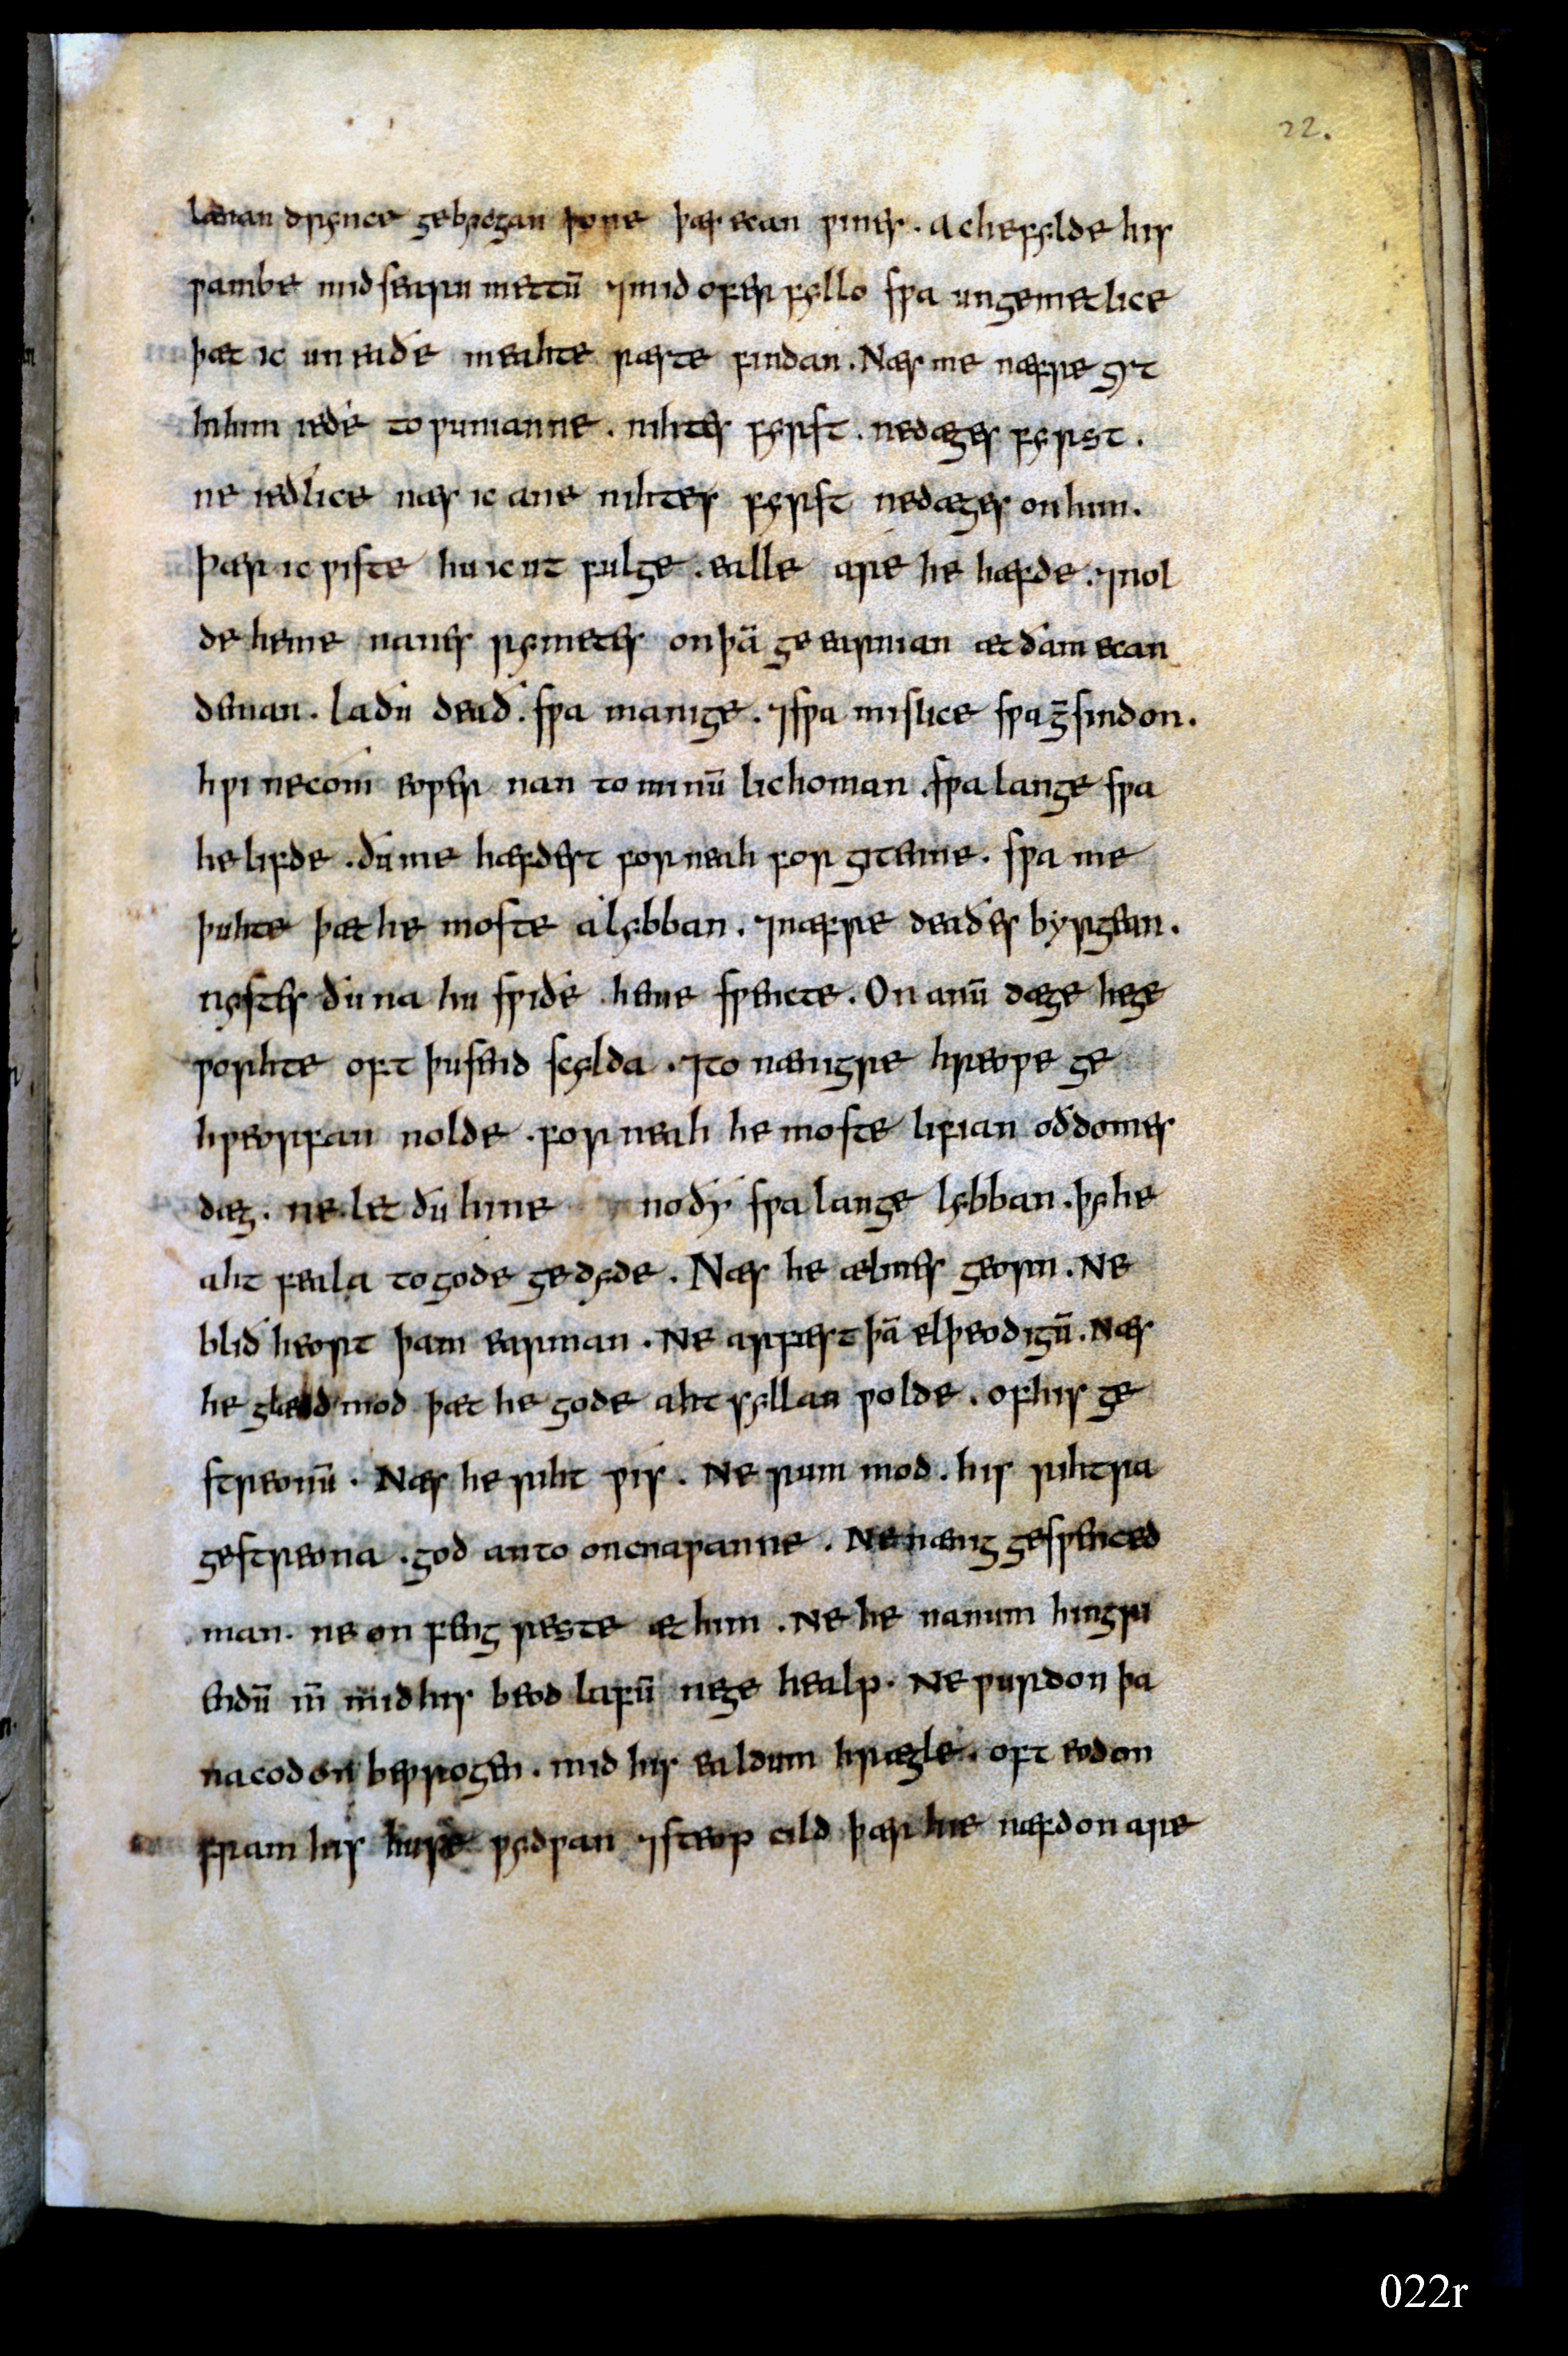 22.
lænan drynce gebycgan þone þæs ecan ƿines. Ac he fylde his
ƿambe mid searu mettū ⁊ mid oferfyllo sƿa ungemetlice
þæt ic uneaðe meahte ræste findan. Næs me næfre gyt
in him ieðe to ƿunianne. nihtes fyrst. ne dæges fyrst.
ne ieðlice næs ic ane nihtes fyrst ne dæges on him.
þær ic ƿiste hu ic ut fulge. ealle are he hæfde. ⁊ nol
de he me nanes rymetes on þā geearnian æt ðam ecan
deman. La ðu deað. sƿa manige. ⁊ sƿa mislice sƿa g̅ sindon.
hƿi ne com eoƿer nan to minū lichoman. sƿa lange sƿa
he lifde. ðu me hæfdest forneah forgitenne. sƿa me
þuhte þæt he moste a lybban. ⁊ næfre deaðes byrgean.
nystes ðu na hu sƿiðe he me sƿencte. On anū dæge he ge
ƿorhte oft þusend scylda. ⁊ to nænigre hreoƿe ge
hƿeorfan nolde. forneah he moste lifian oð domes
dæg. ne let ðu hine no ðy sƿa lange lybban. þy he
aht feala to gode gedyde. Næs he ælmes georn. Ne
blið heort þam earman. Ne arfæst þā elþeodigū. Næs
he glæd mod þæt he gode aht syllan ƿolde. of his ge
streonū. Næs he riht ƿis. Ne rum mod. his rihtra
gestreona. god an to oncnaƿanne. Ne nænig gesƿenced
man. ne onfeng reste æt him. Ne he nanum hingri
endū m̄ mid his beod lafū ne ge healp. Ne ƿurdon þa
nacodon beƿrogen. mid his ealdum hrægle. oft eodon
fram his huse ƿydƿan ⁊ steop cild þær hie næfdon are
022r